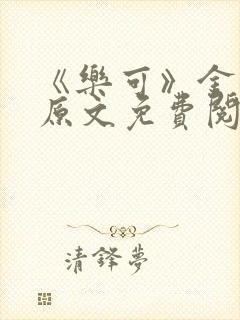 《樂可》全
原文免費閱
清鋒夢